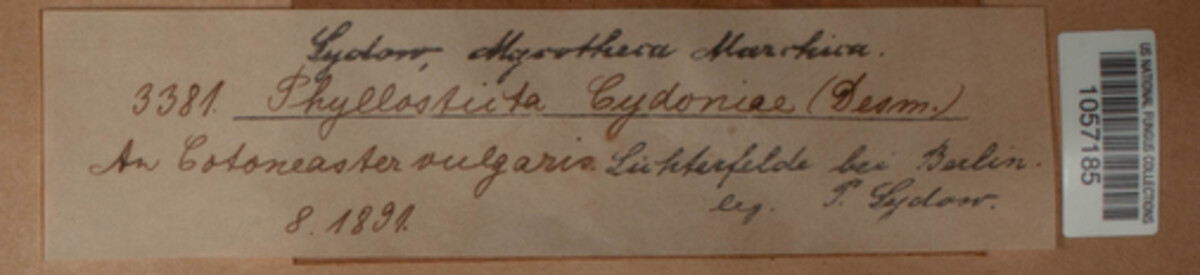 Sydow, Mycotheca Marchica.
3381. Phyllosticta Cydoniae (Desm.)
An Cotoneaster vulgaris. Lichterfelde bei Berlin.
8. 1891. leg. P. Sydow.
US NATIONAL FUNGUS COLLECTIONS
1057185